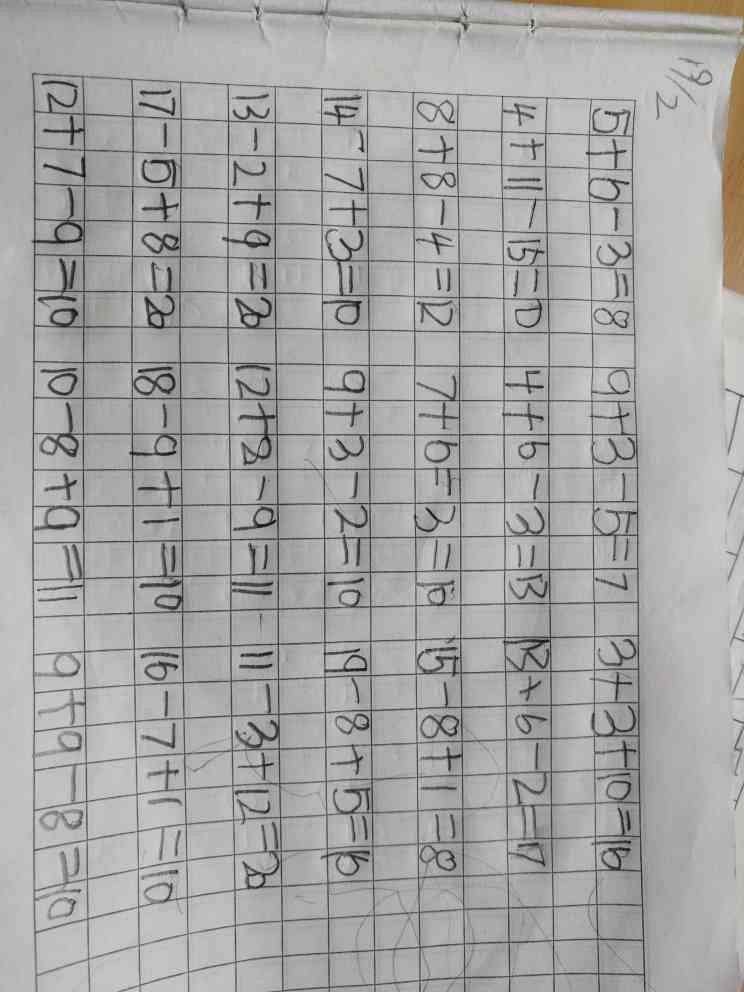 19/2
5+6-3=8 9+3-5=7 3+3+10=16
4+11-15=0 4+6-3=13 13+6-2=17
8+8-4=12 7+6-3=10 15-8+1=8
14-7+3=10 9+3-2=10 19-8+5=16
13-2+9=20 12+8-9=11 11-3+12=20
17-5+8=20 18-9+1=10 16-7+1=10
12+7-9=10 10-8+9=11 9+9-8=10